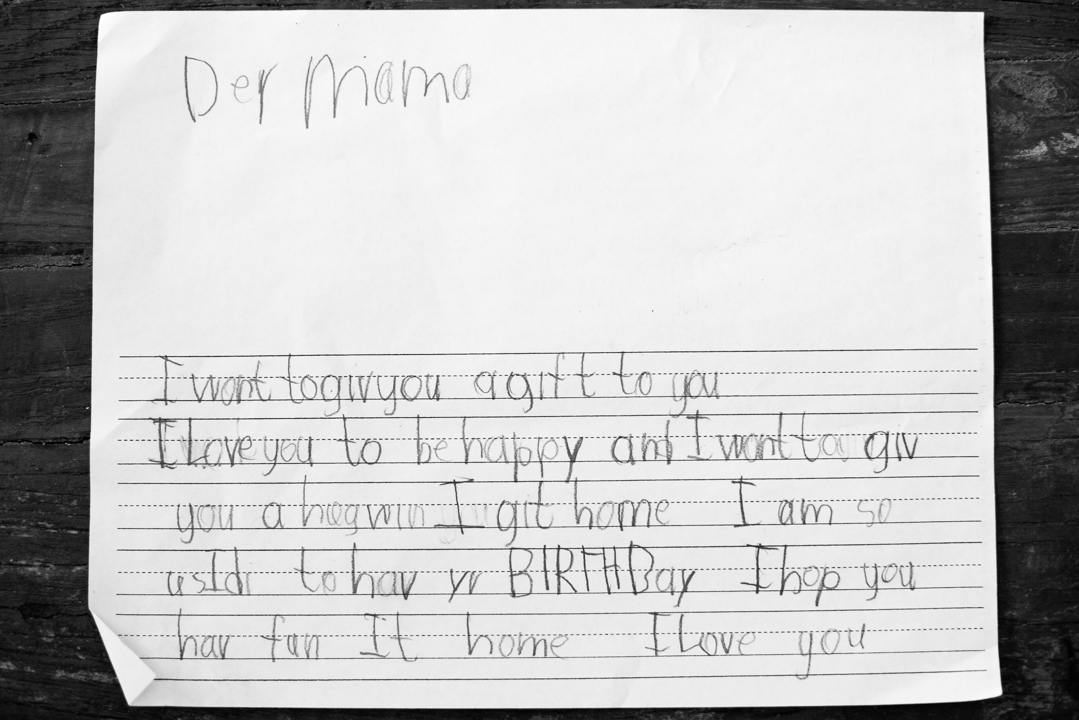 Der Mama
I want to giv you a gift to you
I Love you to be happy and I want to giv
you a hog win I git home I am so
to hav yr BIRTHDay I hop you
hav fun It home I Love you